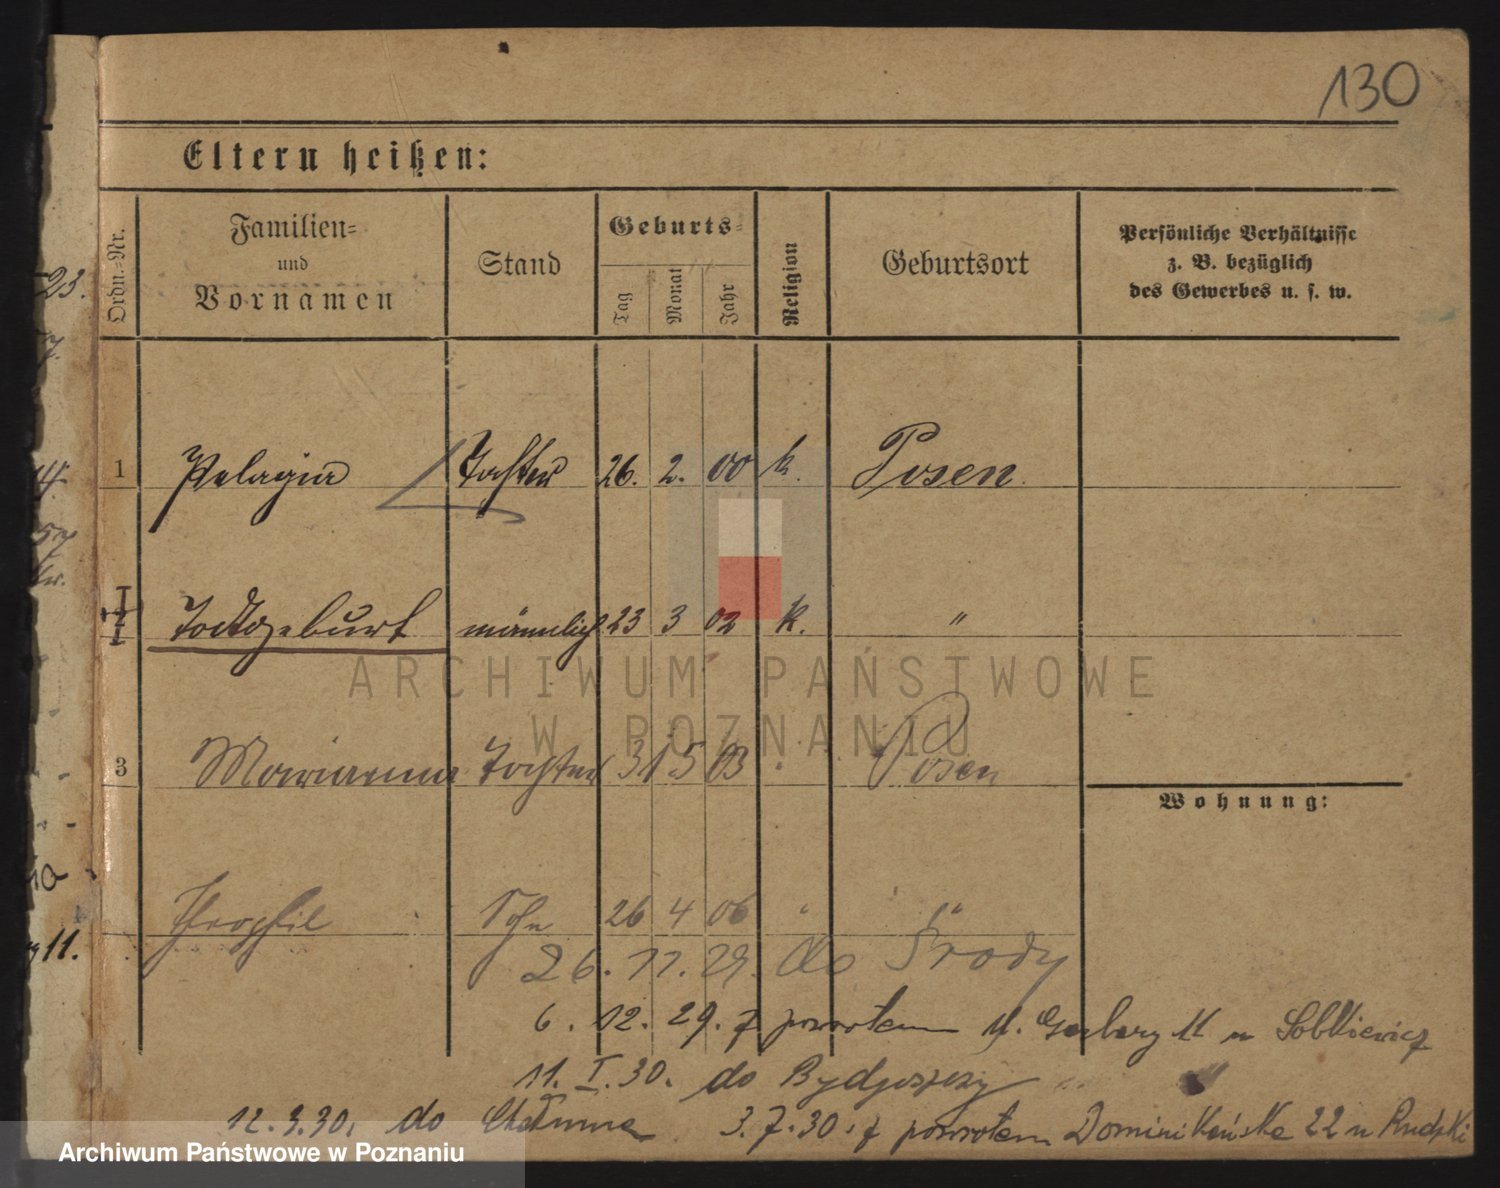 130
Eltern heißen:
Ordn.-Nr.
Familien-
und
Vornamen
Stand
Geburts-
Tag
Monat
Jahr
Religion
Geburtsort
Persönliche Verhältnisse
z. B. bezüglich
des Gewerbes u. s. w.
23.
1 Pelagia Tochter 26. 2. 00 k. Posen
Todtgeburt männlich 23 3 02 k. "
ARCHIWUM PAŃSTWOWE
W POZNANIU
3 Marianna Tochter 31 5 03 " Posen
Wohnung:
Theophil Sohn 26 4 06 " "
11.
26. 11. 29. do Środy
6. 12. 29. z powrotem Garbary 11 u Sobkiewicz
11. I. 30. do Bydgoszczy
12. 3. 30. do Chełmna 3. 7. 30. z powrotem Dominikańska 22 u Rudzki
Archiwum Państwowe w Poznaniu